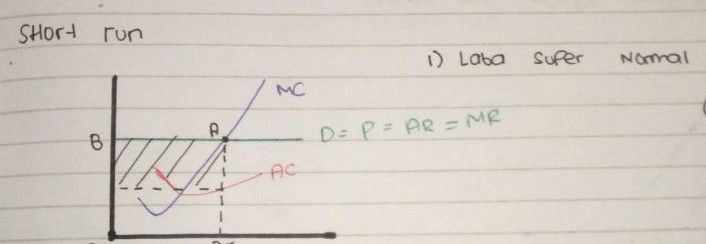 Short run
1) Laba Super Normal
MC
B
A
D = P = AR = MR
AC